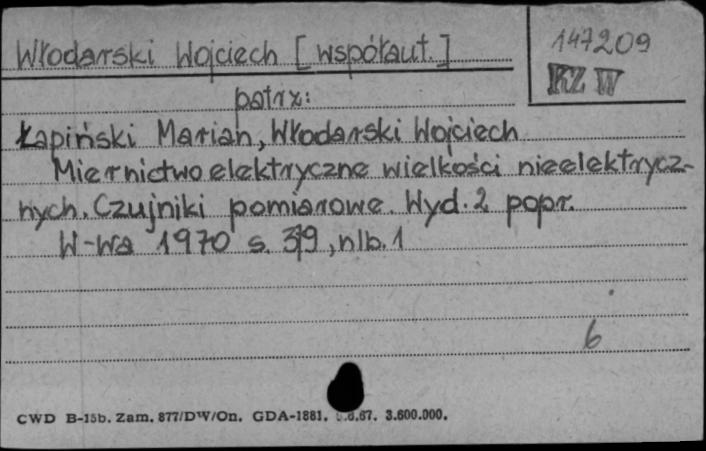 Włodarski Wojciech [współaut.]
147209
KZ W
patrz:
Łapiński Marian, Włodarski Wojciech
Miernictwo elektryczne wielkości nieelektrycz-
nych. Czujniki pomiarowe. Wyd. 2 popr.
W-wa 1970 s. 319, nlb. 1
6
CWD B-15b. Zam. 877/DW/On. GDA-1881. 3.600.000.